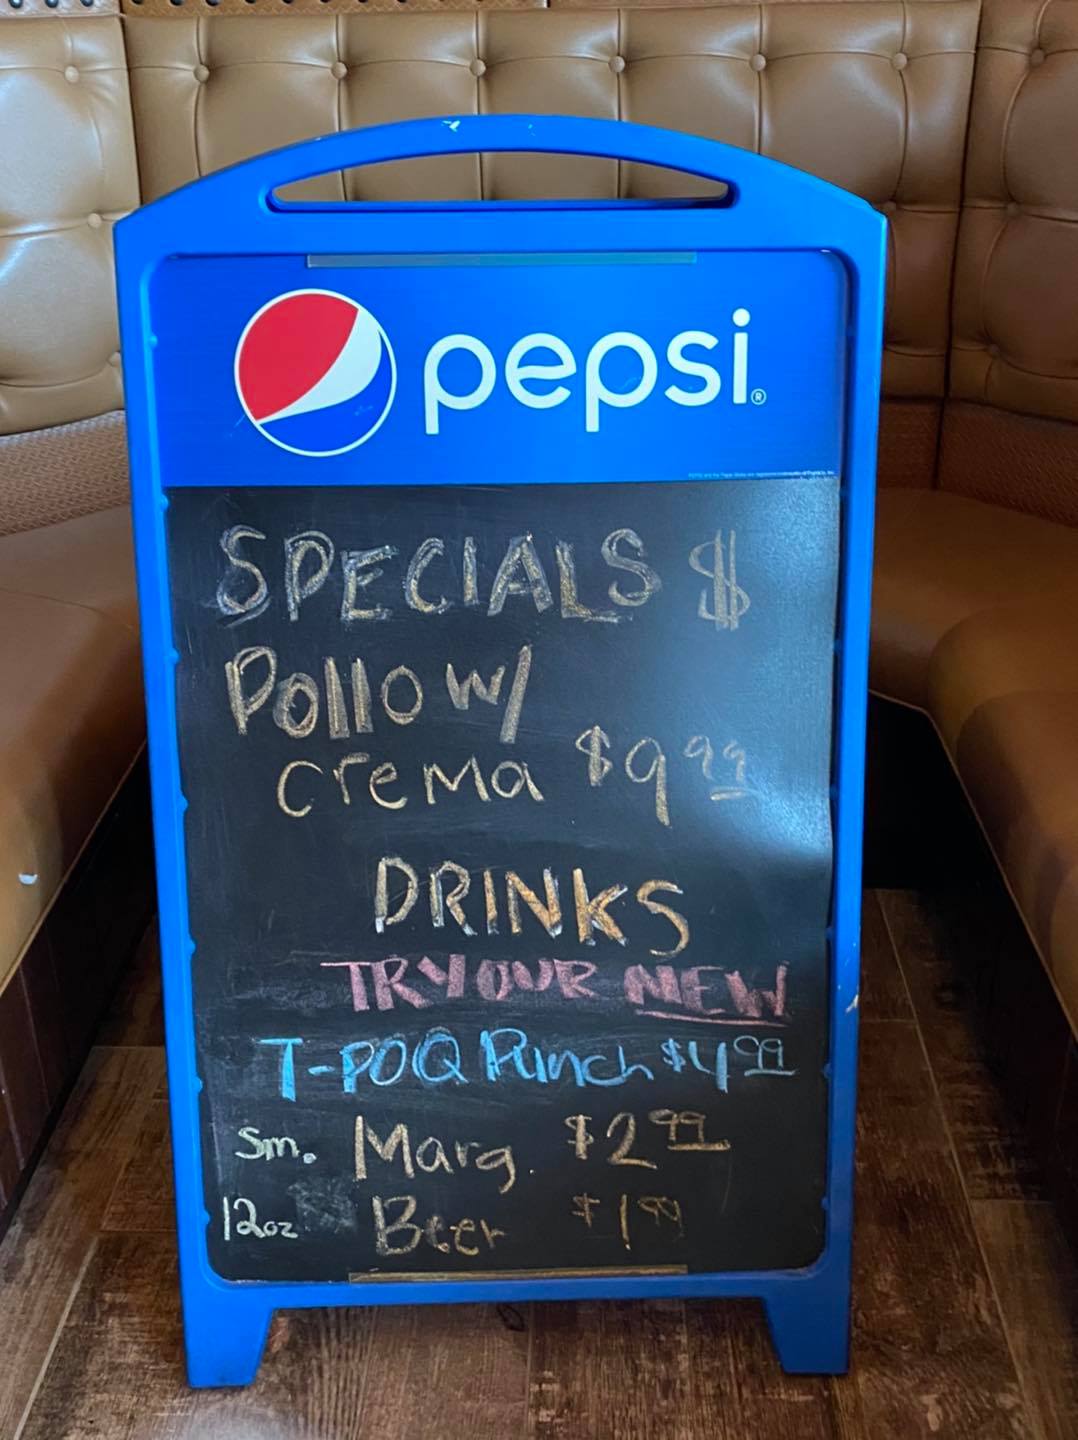 pepsi®
SPECIALS $
Pollo w/
crema $9.99
DRINKS
TRY OUR NEW
T-POQ Punch $4.99
Sm. Marg. $2.99
12oz Beer $1.99